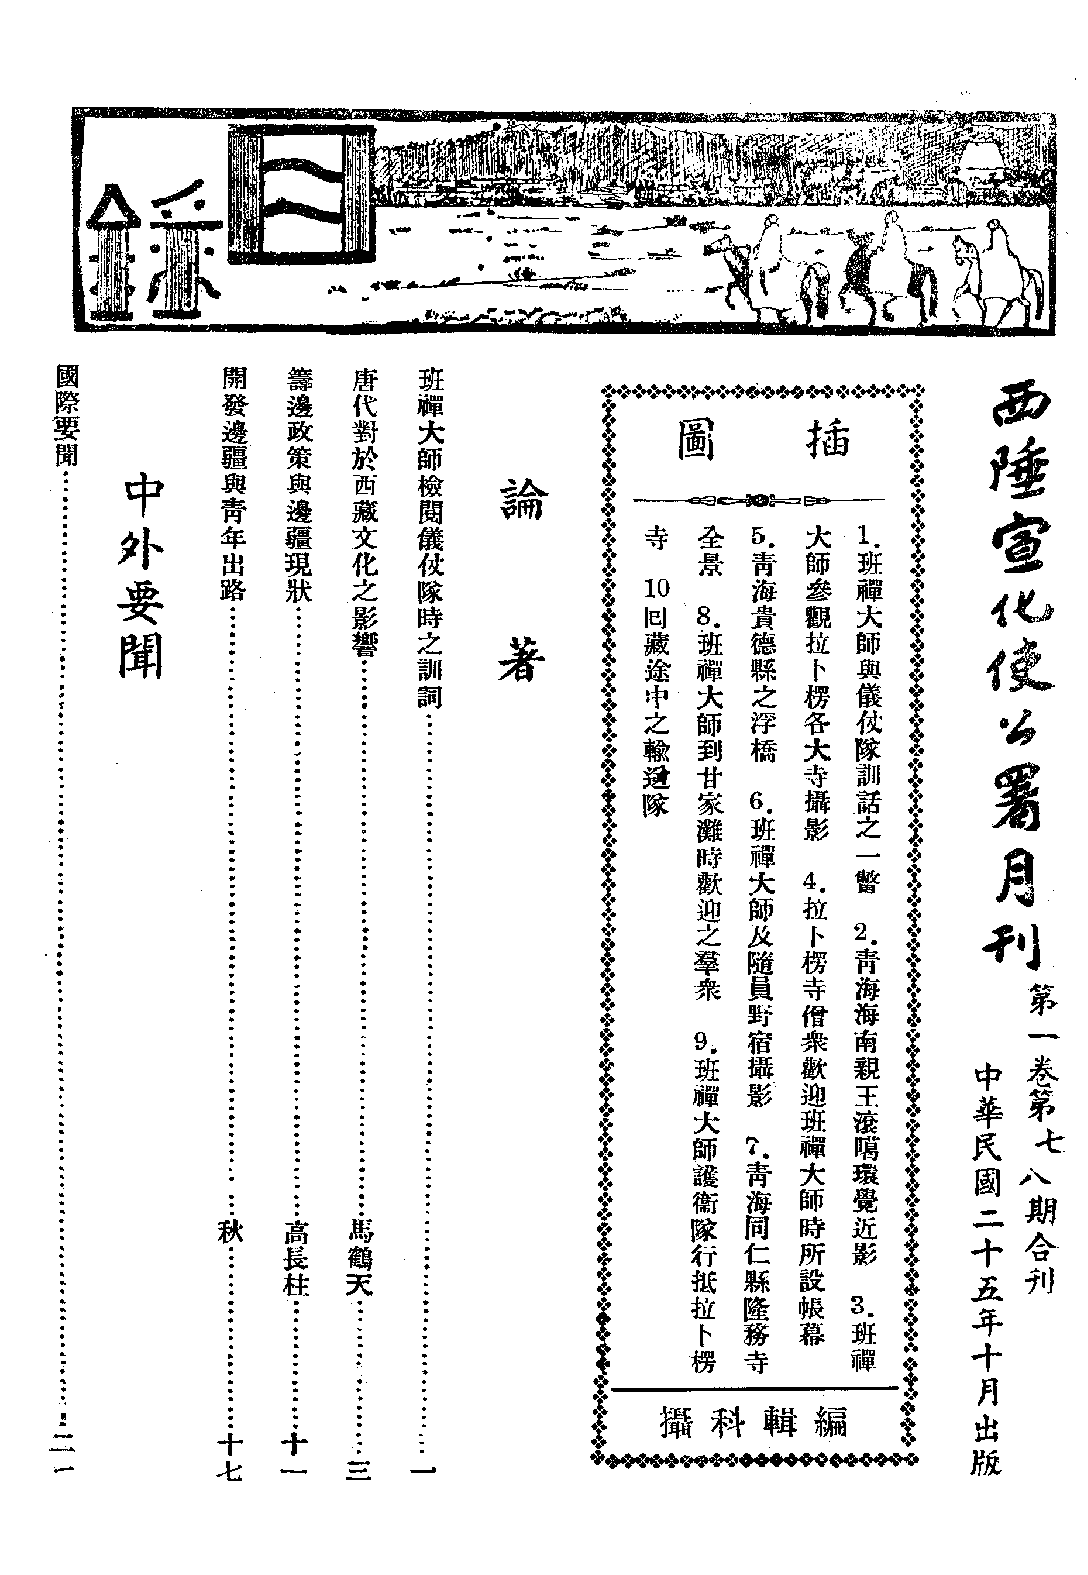 目彔
西陲宣化使公署月刊
第一卷第七八期合刊
中華民國二十五年十月出版
插圖
1.班禪大師與儀仗隊訓話之一瞥 2.青海海南親王滾噶環覺近影 3.班禪
大師參觀拉卜楞各大寺攝影 4.拉卜楞寺僧衆歡迎班禪大師時所設帳幕
5.青海貴德縣之浮橋 6.班禪大師及隨員野宿攝影 7.青海同仁縣隆務寺
全景 8.班禪大師到甘家灘時歡迎之羣衆 9.班禪大師護衞隊行抵拉卜楞
寺 10回藏途中之輸運隊
編輯科攝
論著
班禪大師檢閱儀仗隊時之訓詞……一
唐代對於西藏文化之影響……馬鶴天……三
籌邊政策與邊疆現狀……高長柱……十一
開發邊疆與靑年出路……秋……十七
中外要聞
國際要聞……二一